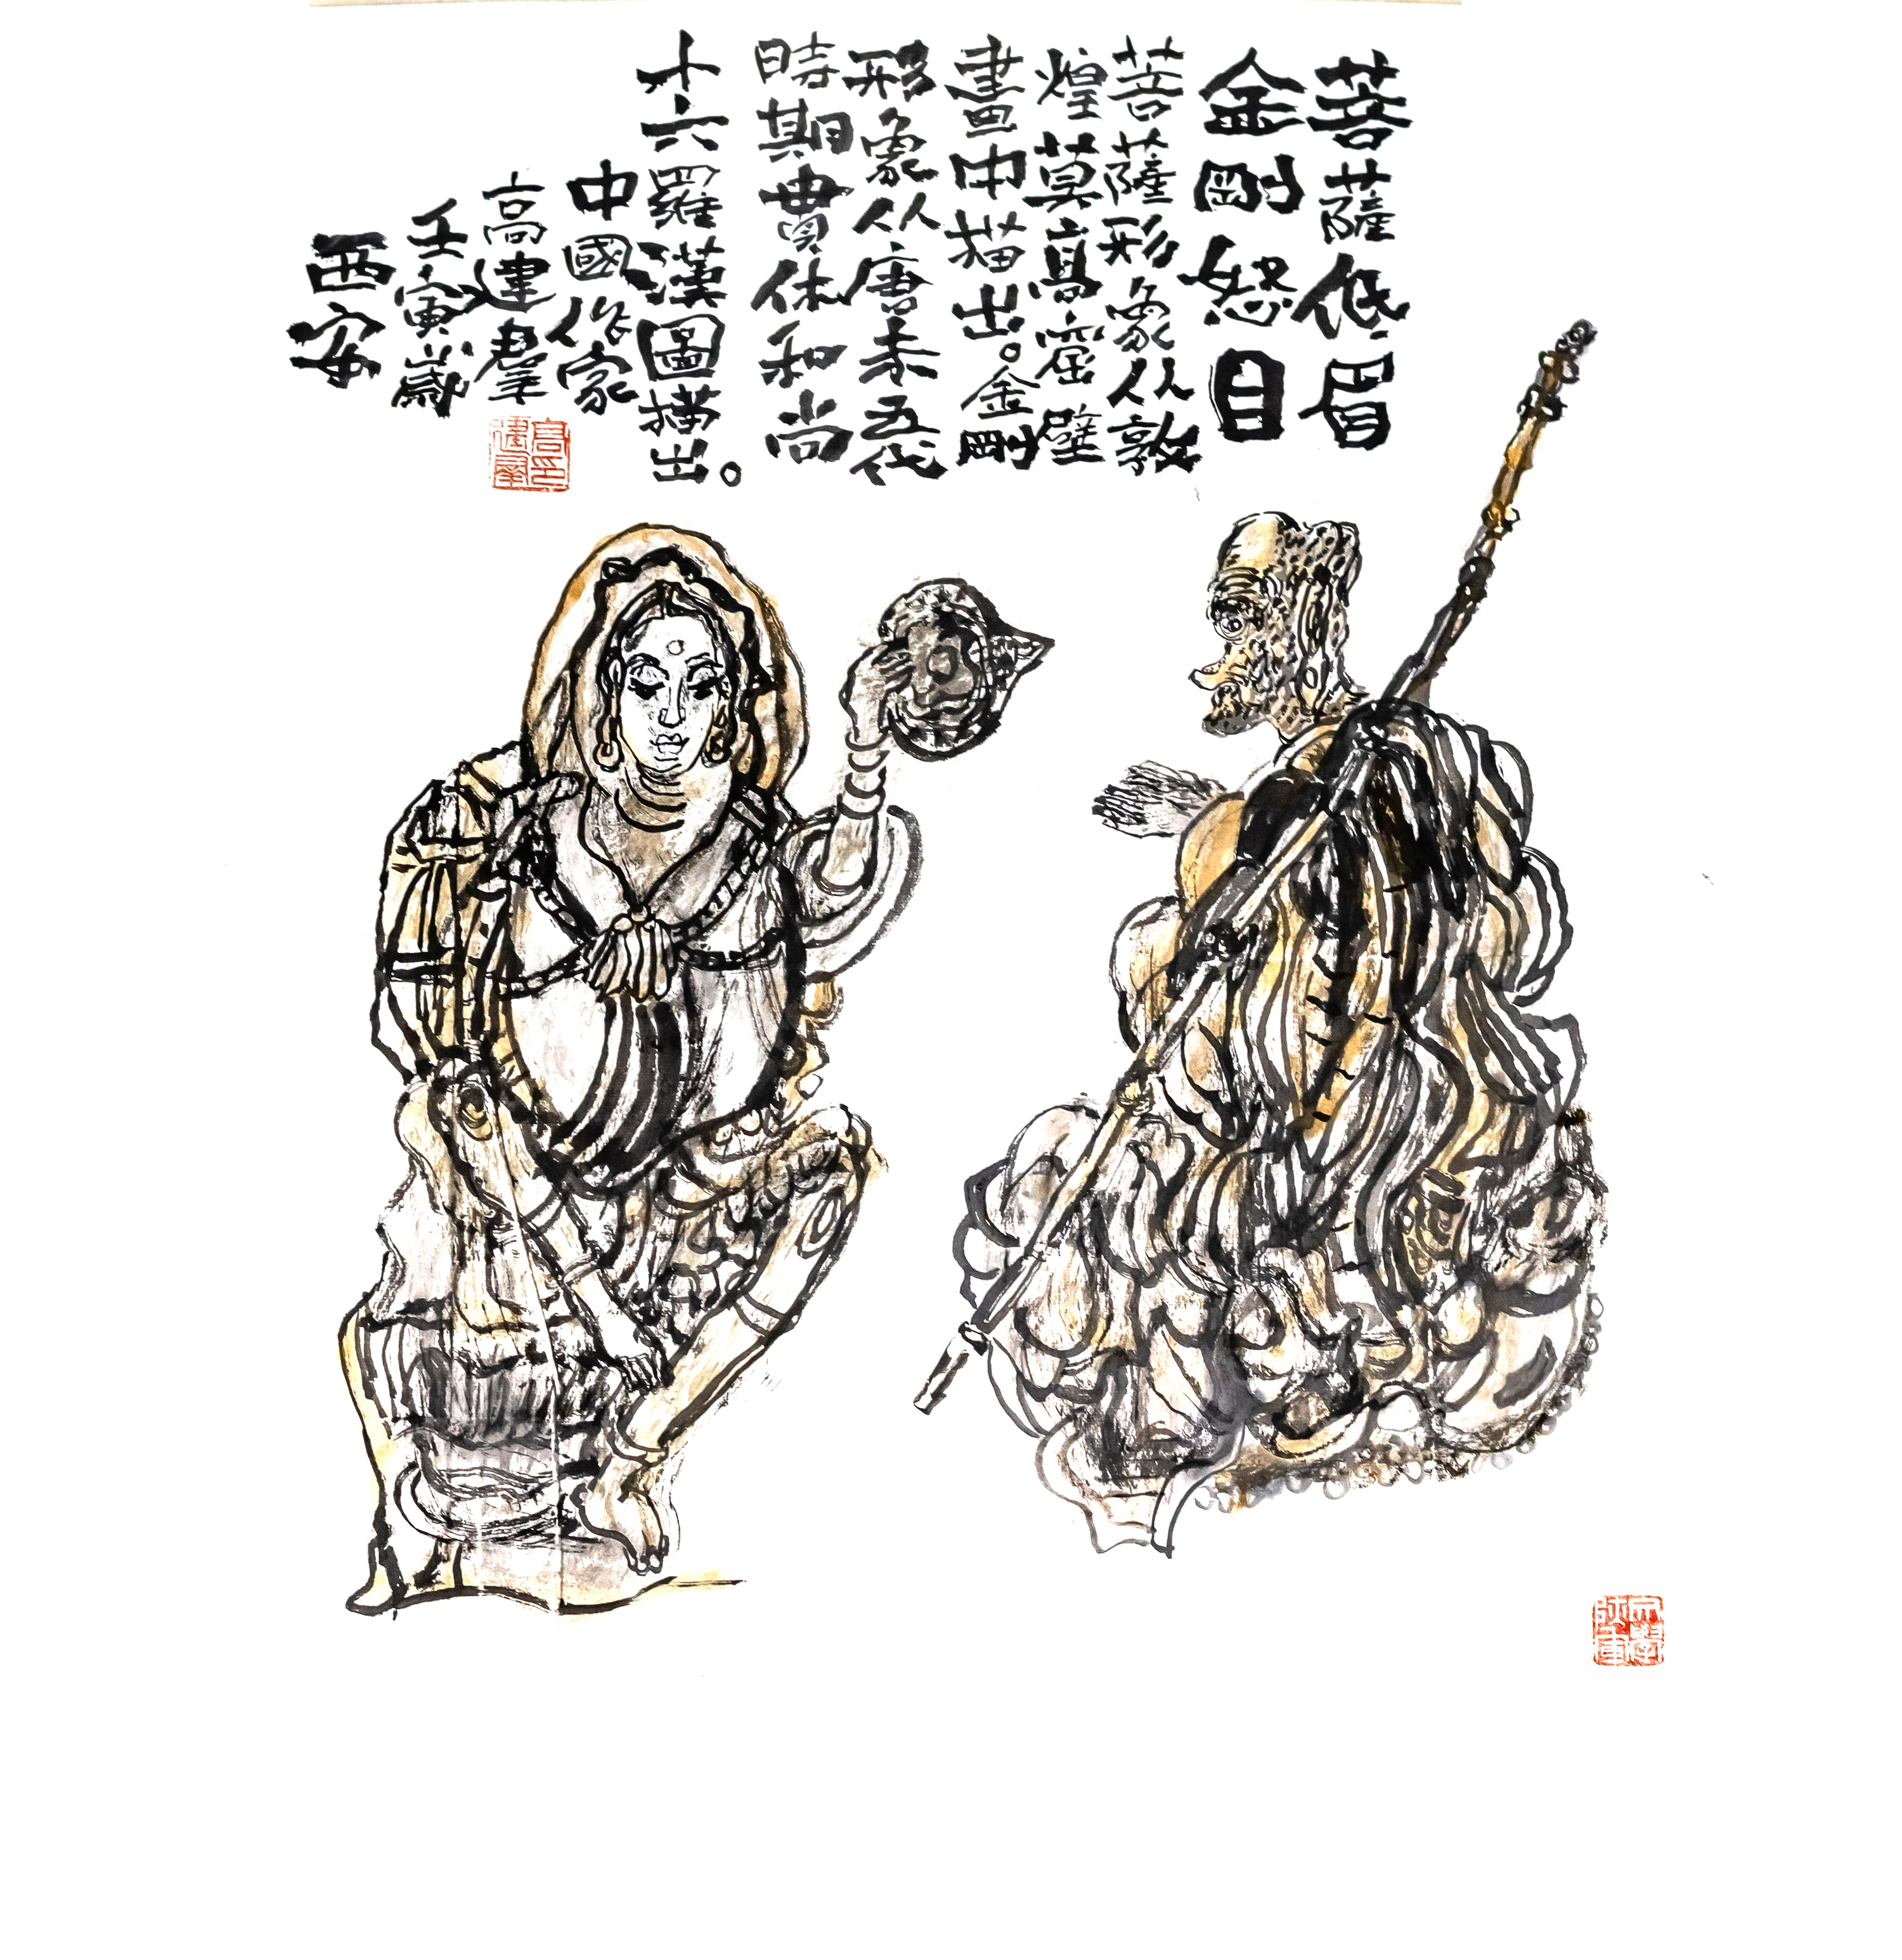 菩薩低眉
金剛怒目
菩薩形象从敦
煌莫高窟壁
畫中描出。金剛
形象从唐末五代
時期貫休和尚
十六羅漢圖描出。
中國作家
高建羣
壬寅歲
西安
高建羣印